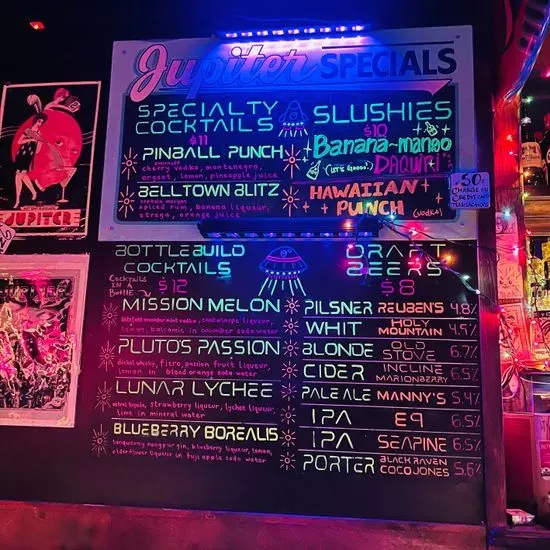 Jupiter SPECIALS
SPECIALTY
COCKTAILS
$11
PINBALL PUNCH
smirnoff
cherry vodka, montenegro,
orgeat, lemon, pineapple juice
BELLTOWN BLITZ
captain morgan
spiced rum, banana liqueur,
strega, orange juice
SLUSHIES
$10
Banana~mango
(LET'S Goooo!) DAQUIRI
HAWAIIAN
PUNCH (vodka)
.50¢
CHARGE ON
CREDIT CARD
TRANSACTIONS
BOTTLE BUILD
COCKTAILS
COCKTAILS
IN A
BOTTLE
$12
MISSION MELON
mint vodka, cantaloupe liqueur,
lemon, balsamic in cucumber soda water
PLUTO'S PASSION
dickel whisky, fiero, passion fruit liqueur,
lemon in blood orange soda water
LUNAR LYCHEE
astral tequila, strawberry liqueur, lychee liqueur,
lime in mineral water
BLUEBERRY BOREALIS
tanqueray rangpur gin, blueberry liqueur, lemon,
elderflower liqueur in fuji apple soda water
DRAFT
BEERS
$8
PILSNER REUBEN'S 4.8%
WHIT HOLY MOUNTAIN 4.5%
BLONDE OLD STOVE 6.7%
CIDER INCLINE MARIONBERRY 6.5%
PALE ALE MANNY'S 5.4%
IPA E9 6.5%
IPA SEAPINE 6.5%
PORTER BLACK RAVEN COCO JONES 5.6%
JUPITER
JUPITER